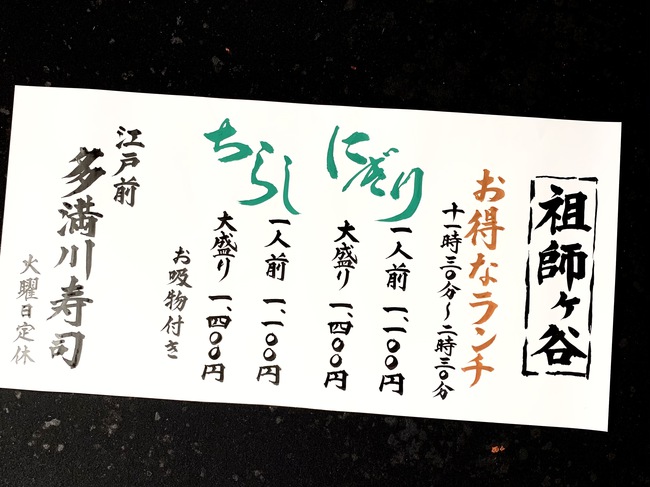 祖師ヶ谷
お得なランチ
十一時三〇分〜二時三〇分
にぎり
一人前 一、一〇〇円
大盛り 一、四〇〇円
ちらし
一人前 一、一〇〇円
大盛り 一、四〇〇円
お吸物付き
江戸前
多満川寿司
火曜日定休